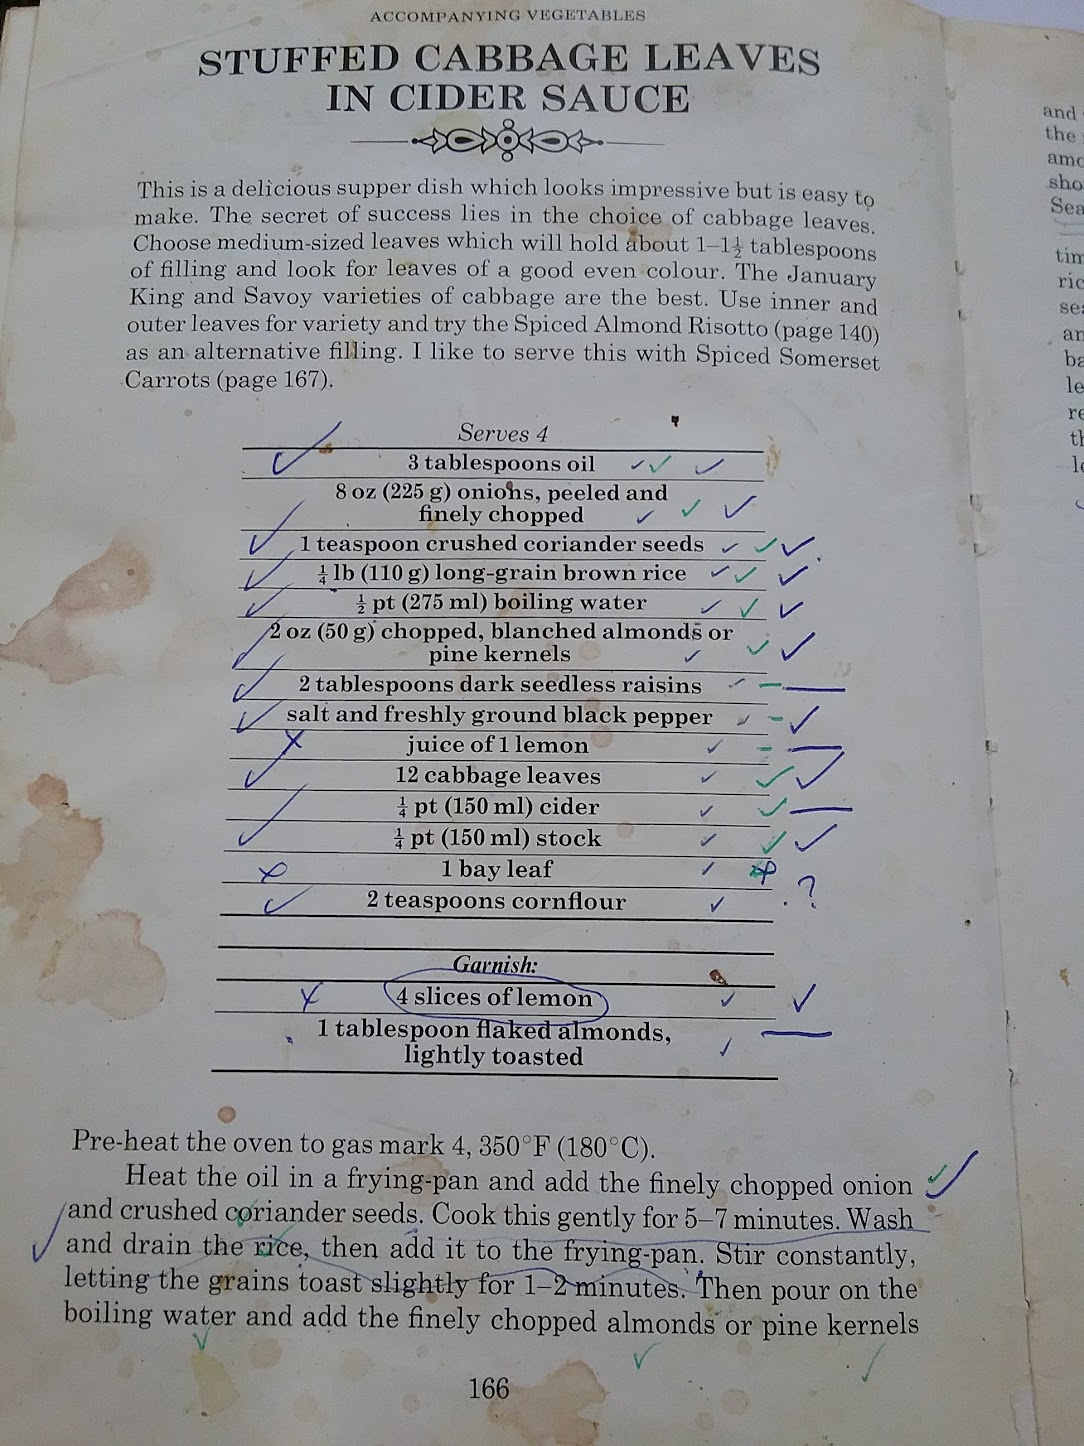 ACCOMPANYING VEGETABLES
STUFFED CABBAGE LEAVES
IN CIDER SAUCE
This is a delicious supper dish which looks impressive but is easy to
make. The secret of success lies in the choice of cabbage leaves.
Choose medium-sized leaves which will hold about 1–1½ tablespoons
of filling and look for leaves of a good even colour. The January
King and Savoy varieties of cabbage are the best. Use inner and
outer leaves for variety and try the Spiced Almond Risotto (page 140)
as an alternative filling. I like to serve this with Spiced Somerset
Carrots (page 167).
Serves 4
3 tablespoons oil
8 oz (225 g) onions, peeled and
finely chopped
1 teaspoon crushed coriander seeds
¼ lb (110 g) long-grain brown rice
½ pt (275 ml) boiling water
2 oz (50 g) chopped, blanched almonds or
pine kernels
2 tablespoons dark seedless raisins
salt and freshly ground black pepper
juice of 1 lemon
12 cabbage leaves
¼ pt (150 ml) cider
¼ pt (150 ml) stock
1 bay leaf
2 teaspoons cornflour
?
Garnish:
4 slices of lemon
1 tablespoon flaked almonds,
lightly toasted
Pre-heat the oven to gas mark 4, 350°F (180°C).
Heat the oil in a frying-pan and add the finely chopped onion
and crushed coriander seeds. Cook this gently for 5–7 minutes. Wash
and drain the rice, then add it to the frying-pan. Stir constantly,
letting the grains toast slightly for 1–2 minutes. Then pour on the
boiling water and add the finely chopped almonds or pine kernels
166
and
the